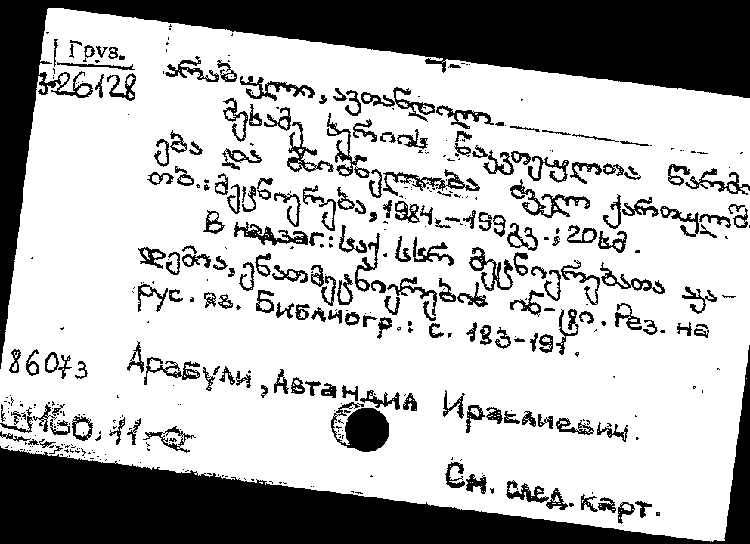 Груз.
3-26128
არაბული, ავთანდილ.
მესამე სერიის ნაკვთეულთა წარმო
ება და მნიშვნელობა ძველ ქართულში
თბ.: მეცნიერება, 1984.-199გვ.; 20სმ.
В надзаг.: საქ. სსრ მეცნიერებათა აკა-
დემია, ენათმეცნიერების ინ-ტი. Рез. на
рус. яз. Библиогр.: с. 183-191.
86073 Арабули, Автандил Ираклиевич.
160.11
См. след. карт.